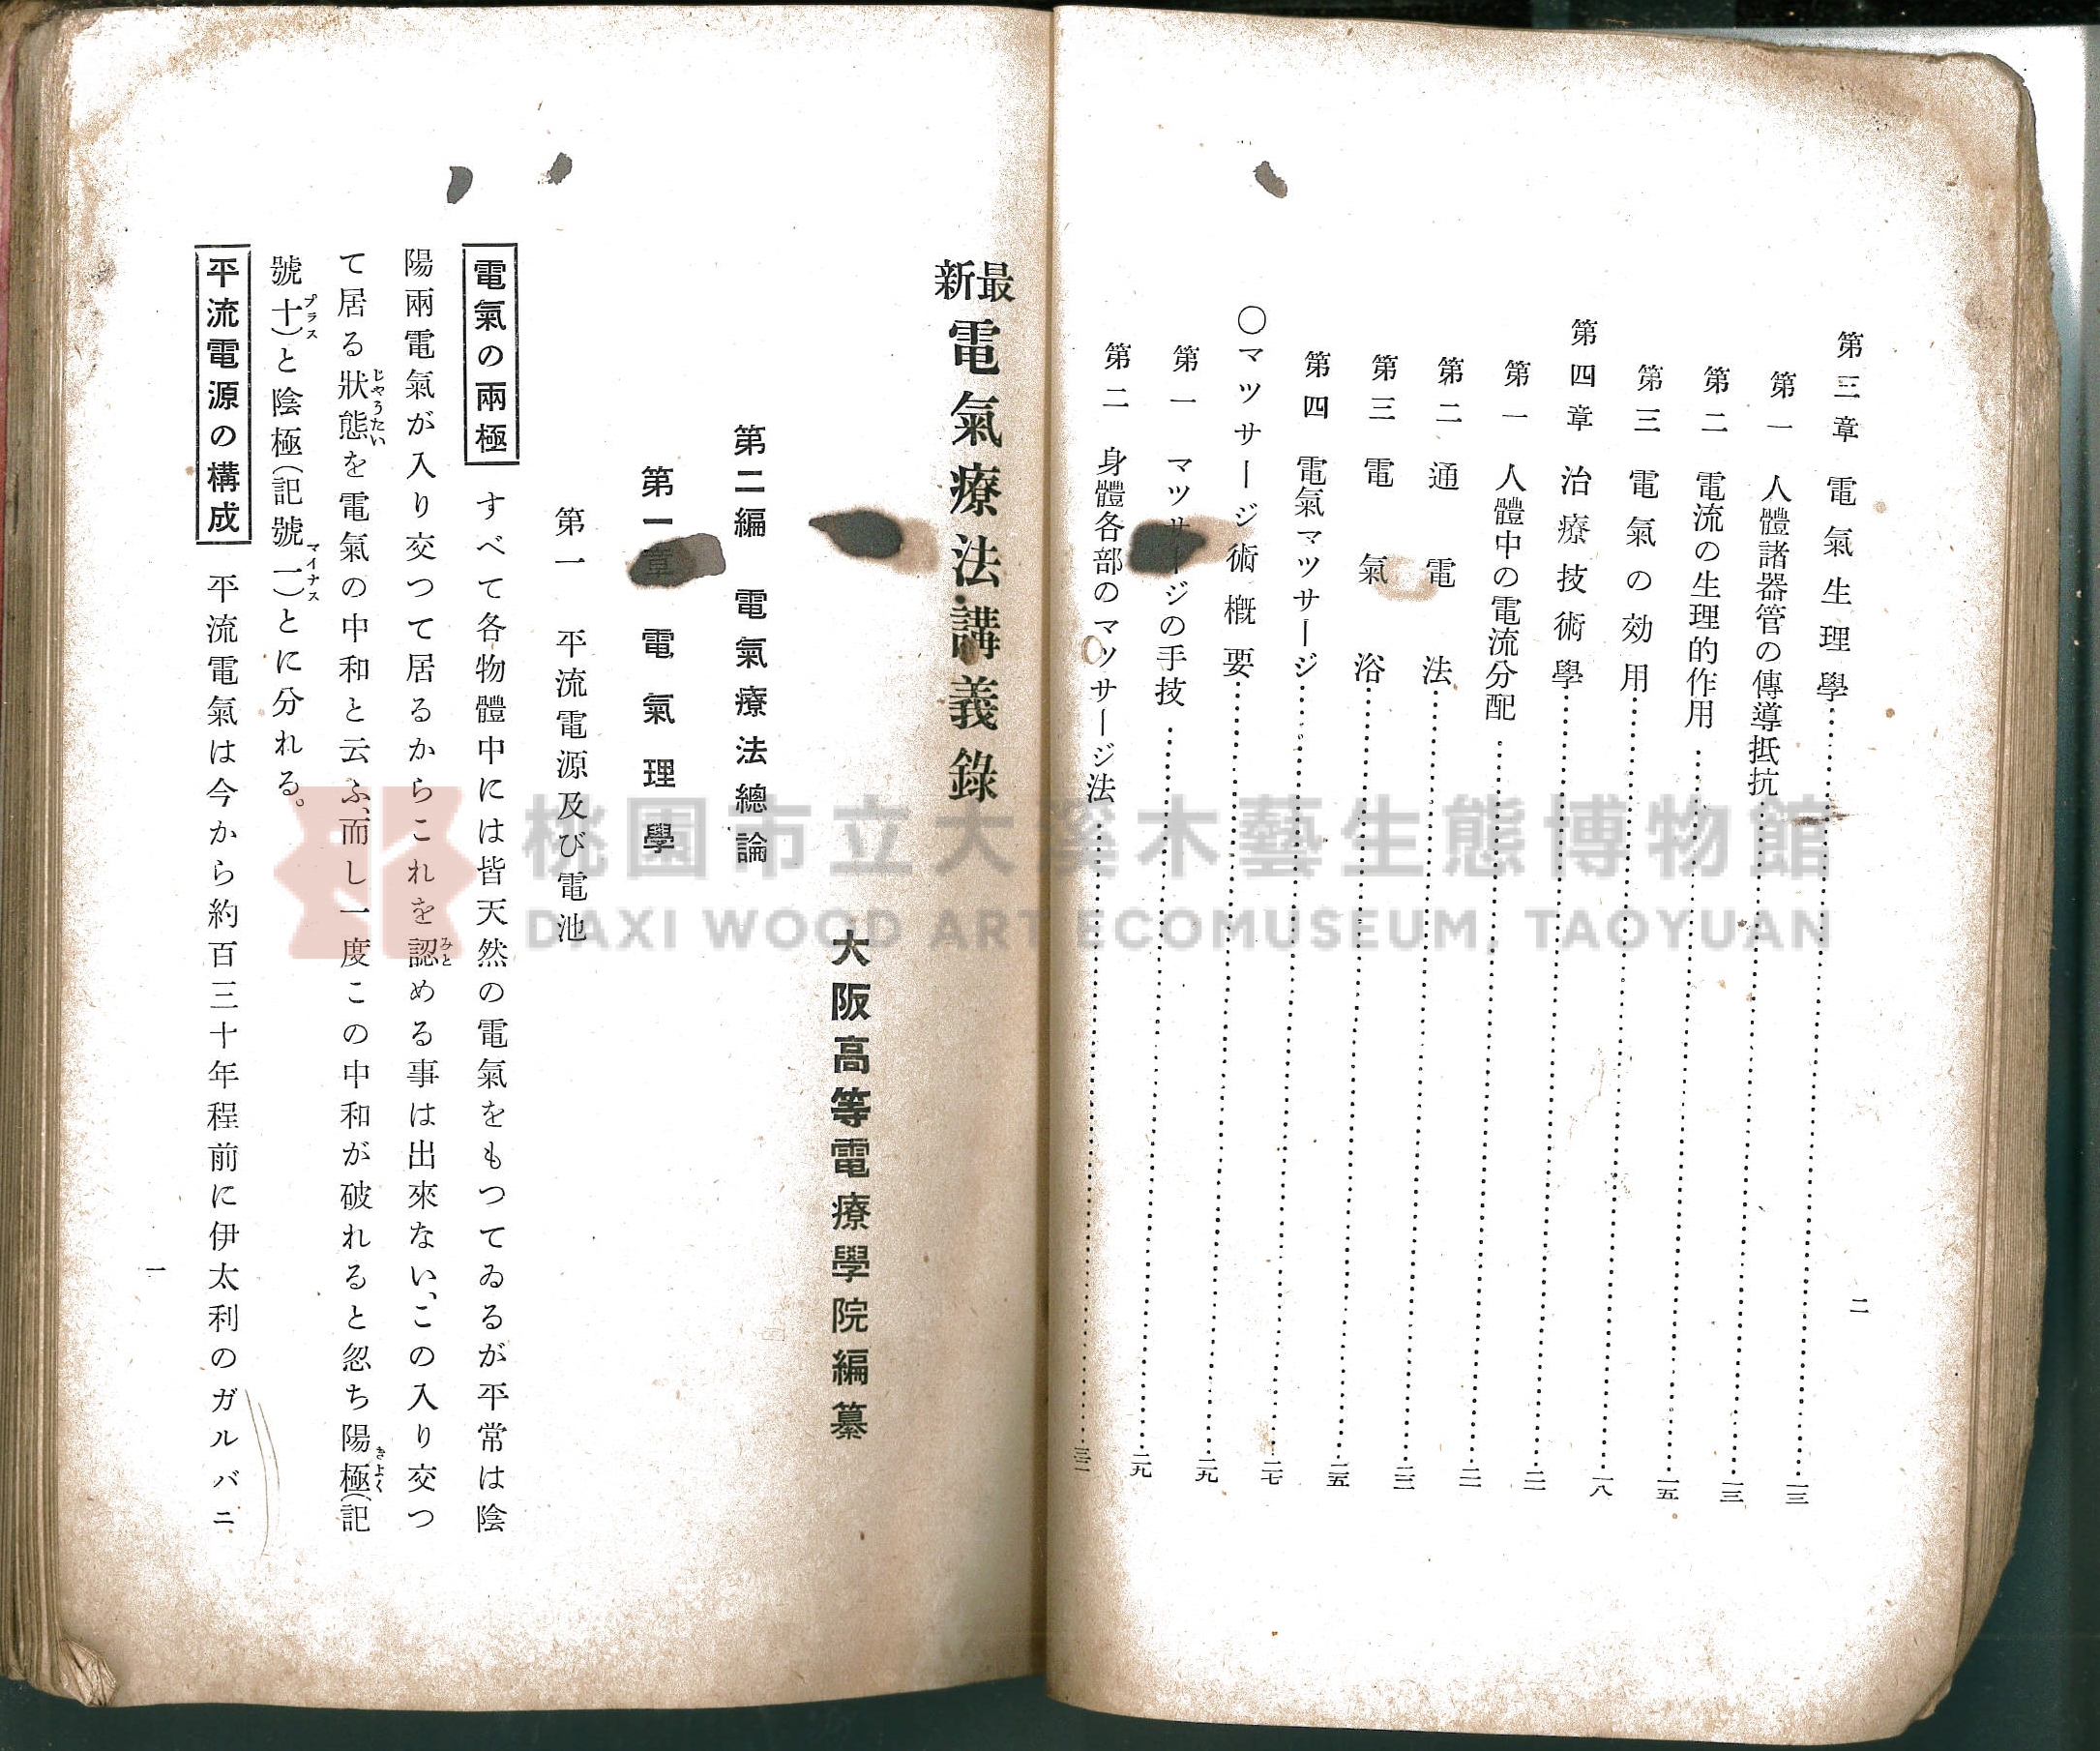 二
第三章 電氣生理學……一三
第一 人體諸器管の傳導抵抗……一三
第二 電流の生理的作用……一五
第三 電氣の効用……一八
第四章 治療技術學……二一
第一 人體中の電流分配……二一
第二 通電法……二三
第三 電氣浴……二五
第四 電氣マツサージ……二七
〇マツサージ術概要……二九
第一 マツサージの手技……二九
第二 身體各部のマツサージ法……三二
最新 電氣療法講義錄
大阪高等電療學院編纂
第二編 電氣療法總論
第一章 電氣理學
第一 平流電源及び電池
電氣の兩極 すべて各物體中には皆天然の電氣をもつてゐるが平常は陰
陽兩電氣が入り交つて居るからこれを認める事は出來ない、この入り交つ
て居る狀態を電氣の中和と云ふ、而し一度この中和が破れると忽ち陽極(記
號十)と陰極(記號一)とに分れる。
平流電源の構成 平流電氣は今から約百三十年程前に伊太利のガルバニ
一
桃園市立大溪木藝生態博物館
DAXI WOOD ART ECOMUSEUM, TAOYUAN